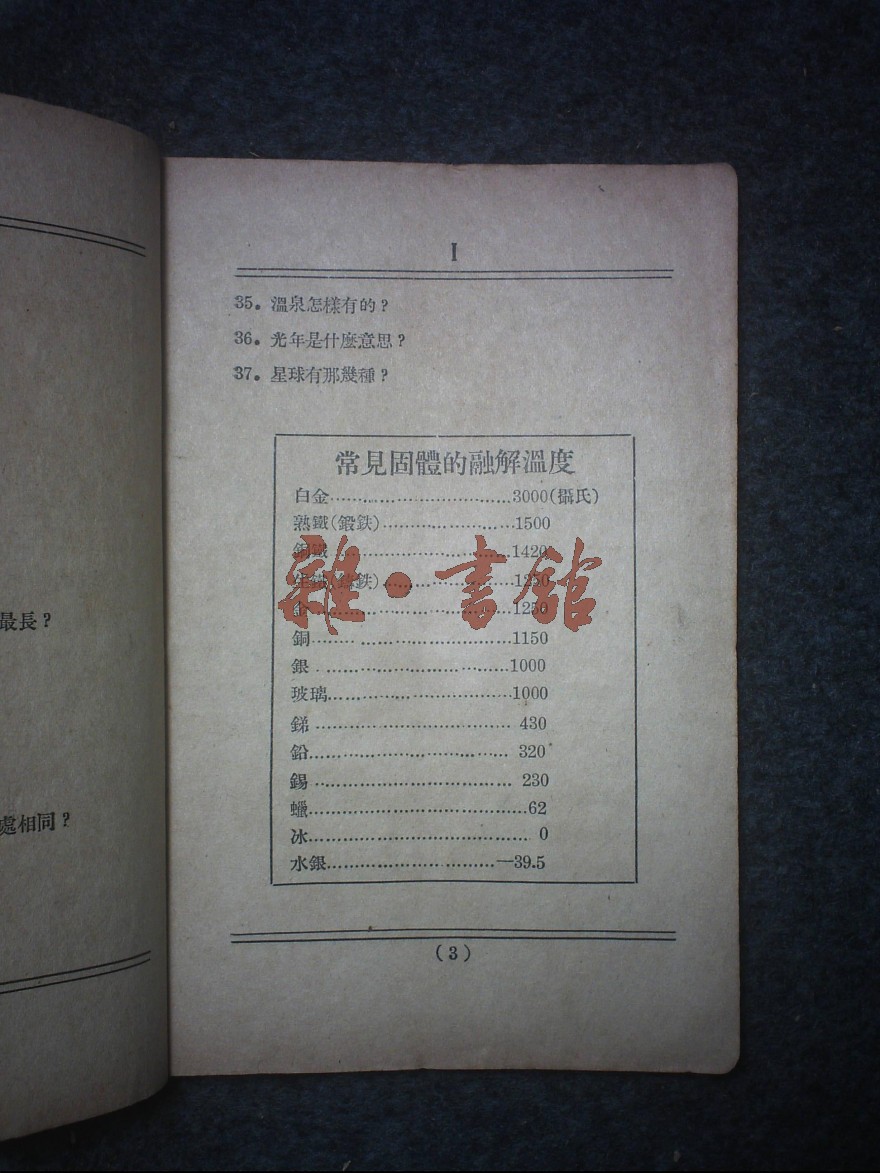 最長？
處相同？
I
35。溫泉怎樣有的？
36。光年是什麼意思？
37。星球有那幾種？
常見固體的融解溫度
白金……………………3000(攝氏)
熟鐵(鍛鉄)……………1500
……………………1420
生鐵(鑄鉄)……………1250
金……………………1250
銅……………………1150
銀……………………1000
玻璃……………………1000
銻……………………430
鉛……………………320
錫……………………230
蠟……………………62
冰……………………0
水銀……………………—39.5
(3)
雜·書館